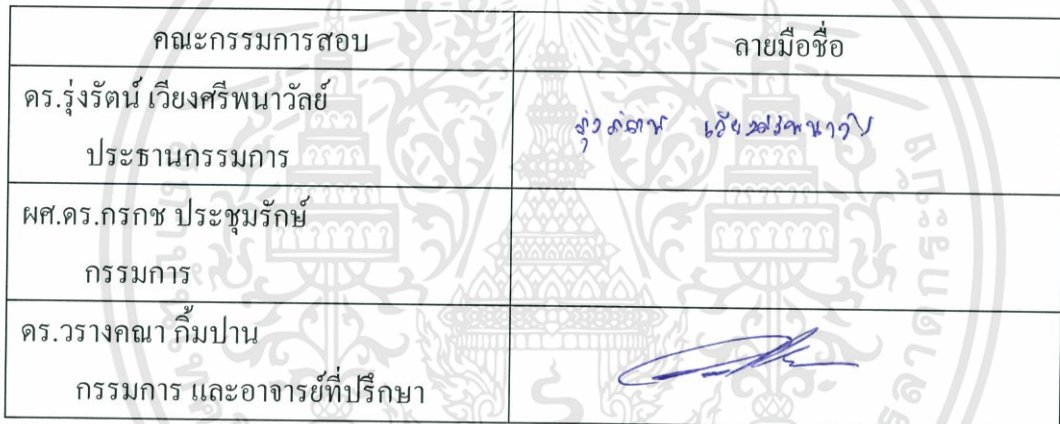 คณะกรรมการสอบ ลายมือชื่อ
ดร.รุ่งรัตน์ เวียงศรีพนาวัลย์
ประธานกรรมการ
รุ่งรัตน์ เวียงศรีพนาวัลย์
ผศ.ดร.กรกช ประชุมรักษ์
กรรมการ
ดร.วรางคณา กิ้มปาน
กรรมการ และอาจารย์ที่ปรึกษา